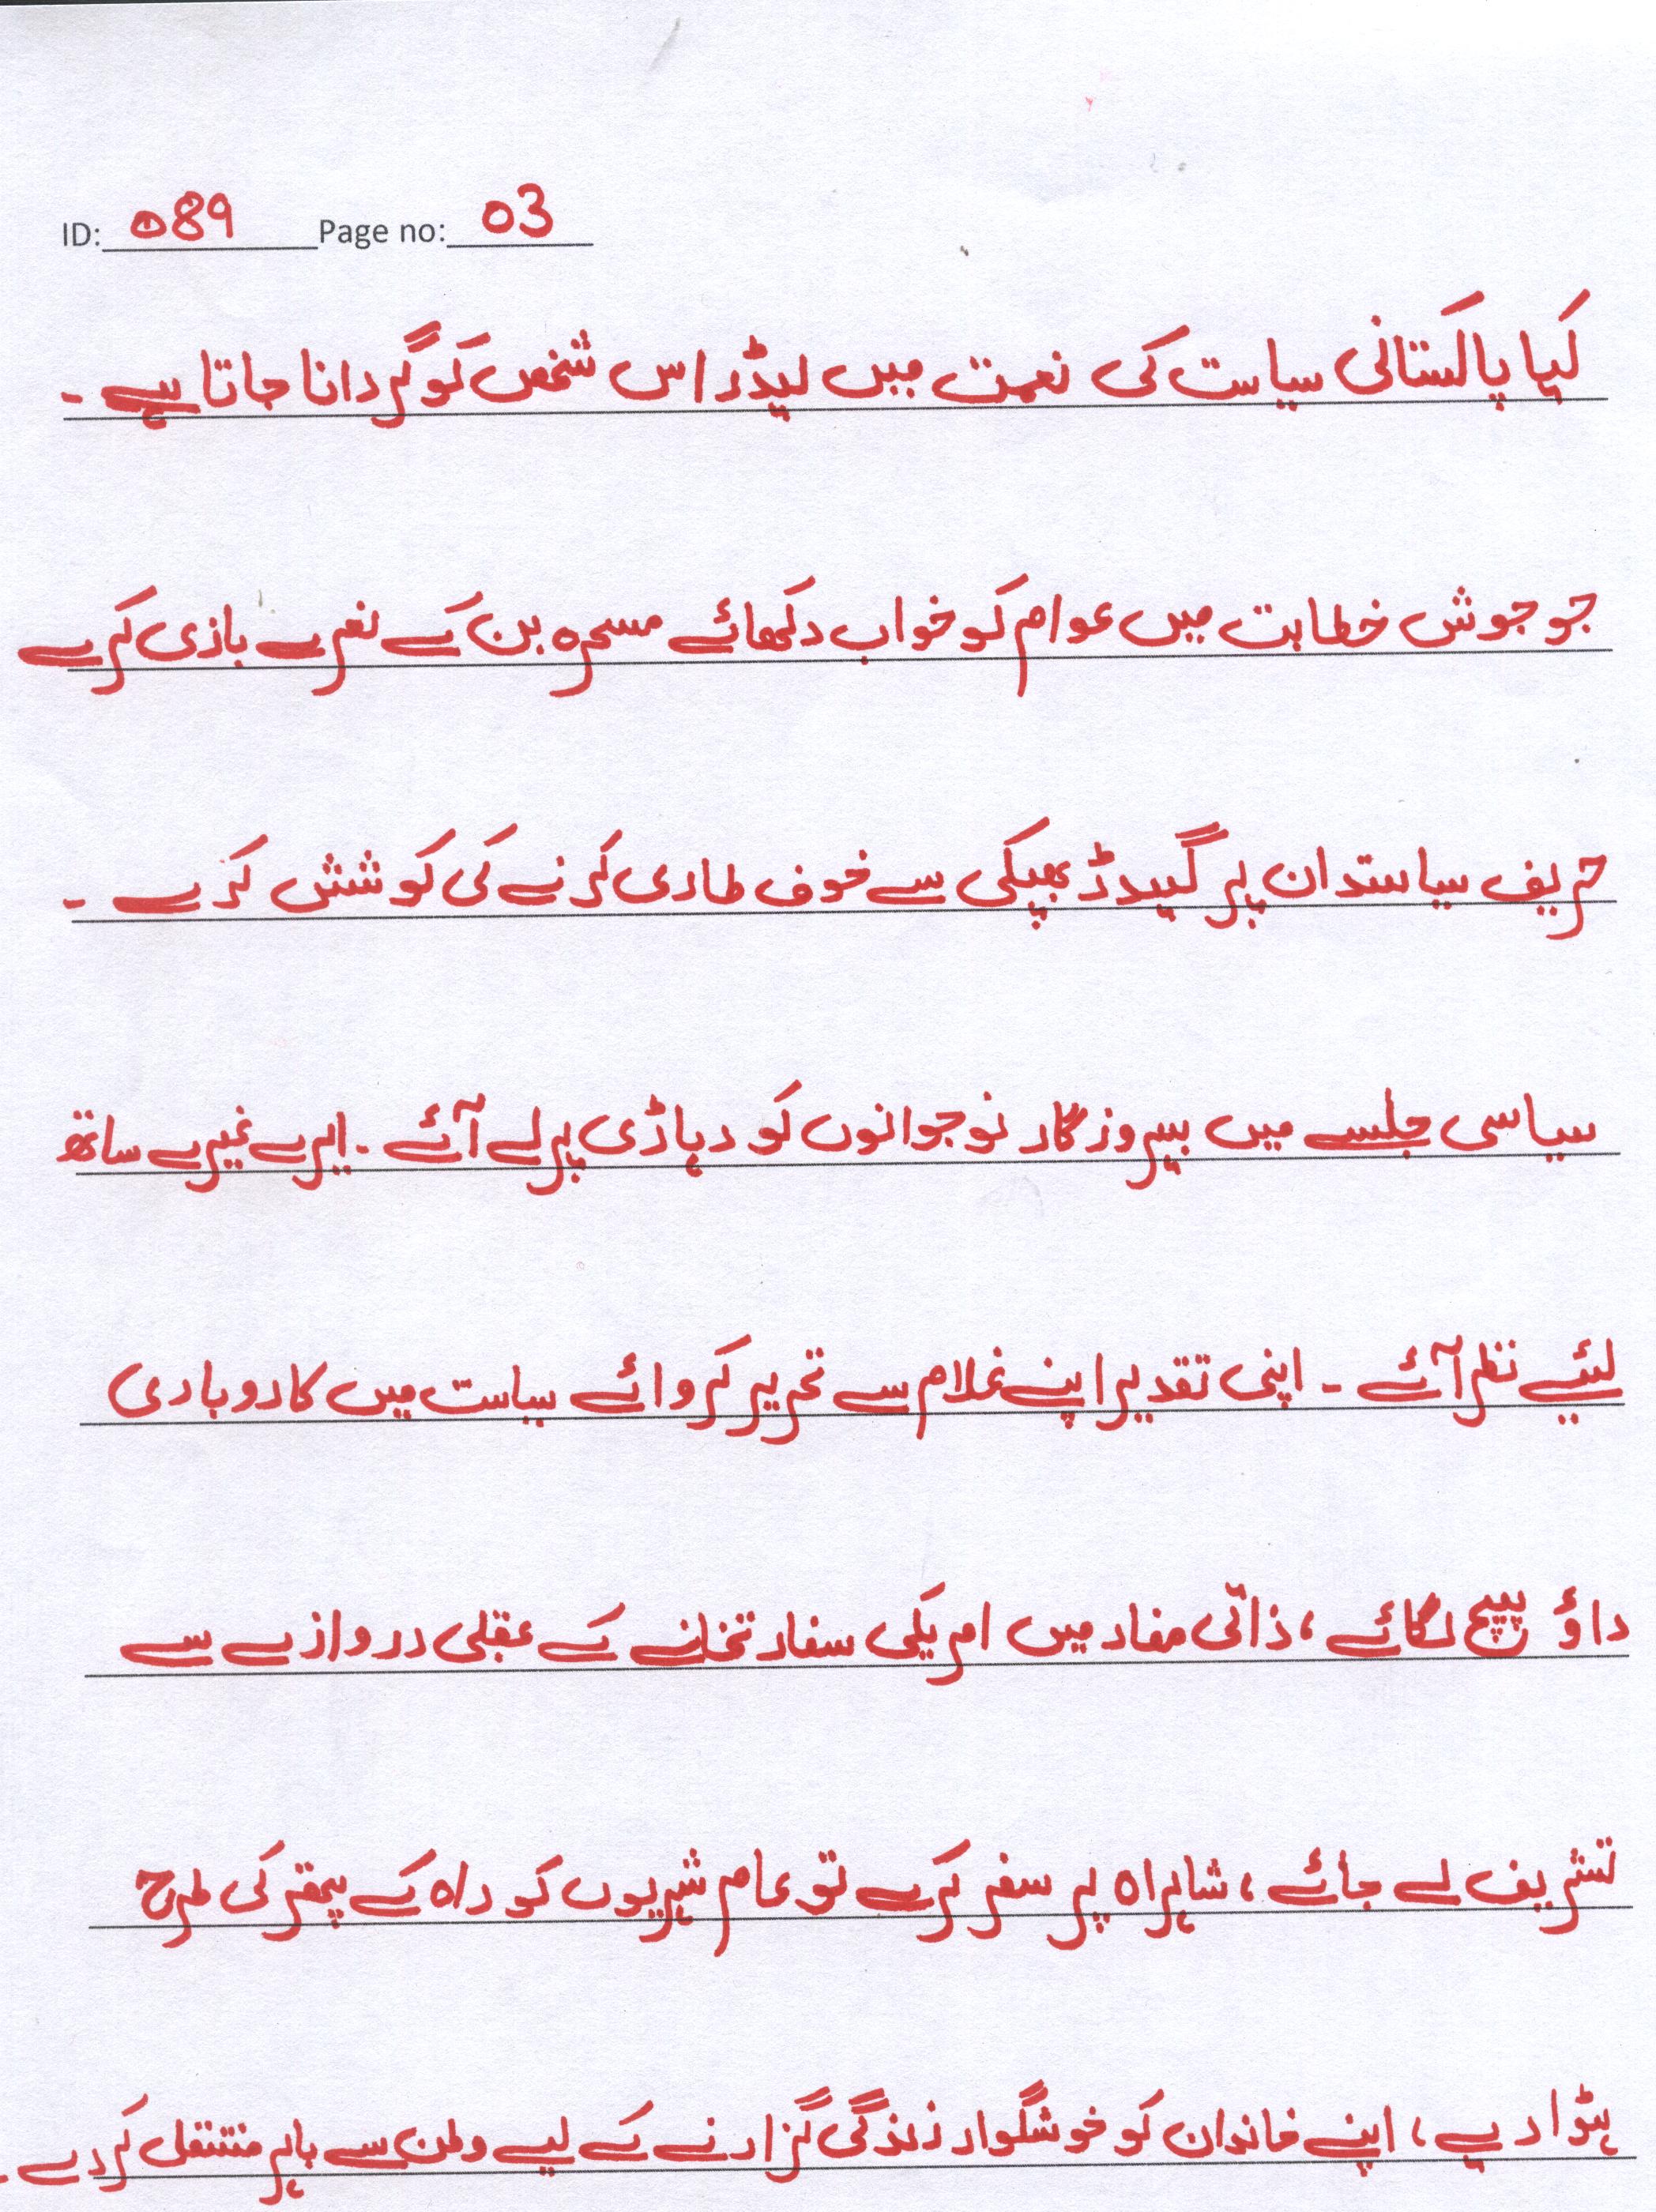 ID: 089 Page no: 03
کیا پاکستانی سیاست کی نعمت میں لیڈر اس شخص کو گردانا جاتا ہے۔
جو جوش خطابت میں عوام کو خواب دکھائے مسخرہ بن کے نعرے بازی کرے
حریف سیاستدان پر گیدڑ بھبکی سے خوف طاری کرنے کی کوشش کرے۔
سیاسی جلسے میں بیروزگار نوجوانوں کو دہاڑی پر لے آئے۔ ایرے غیرے ساتھ
لئیے نظر آئے۔ اپنی تقدیر اپنے غلام سے تحریر کروائے سیاست میں کاروباری
داؤ پیچ لگائے، ذاتی مفاد میں امریکی سفارتخانے کے عقبی دروازے سے
تشریف لے جائے، شاہراہ پر سفر کرے تو عام شہریوں کو راہ کے پتھر کی طرح
ہٹوا دیے، اپنے خاندان کو خوشگوار زندگی گزارنے کے لیے وطن سے باہر منتقل کردے۔